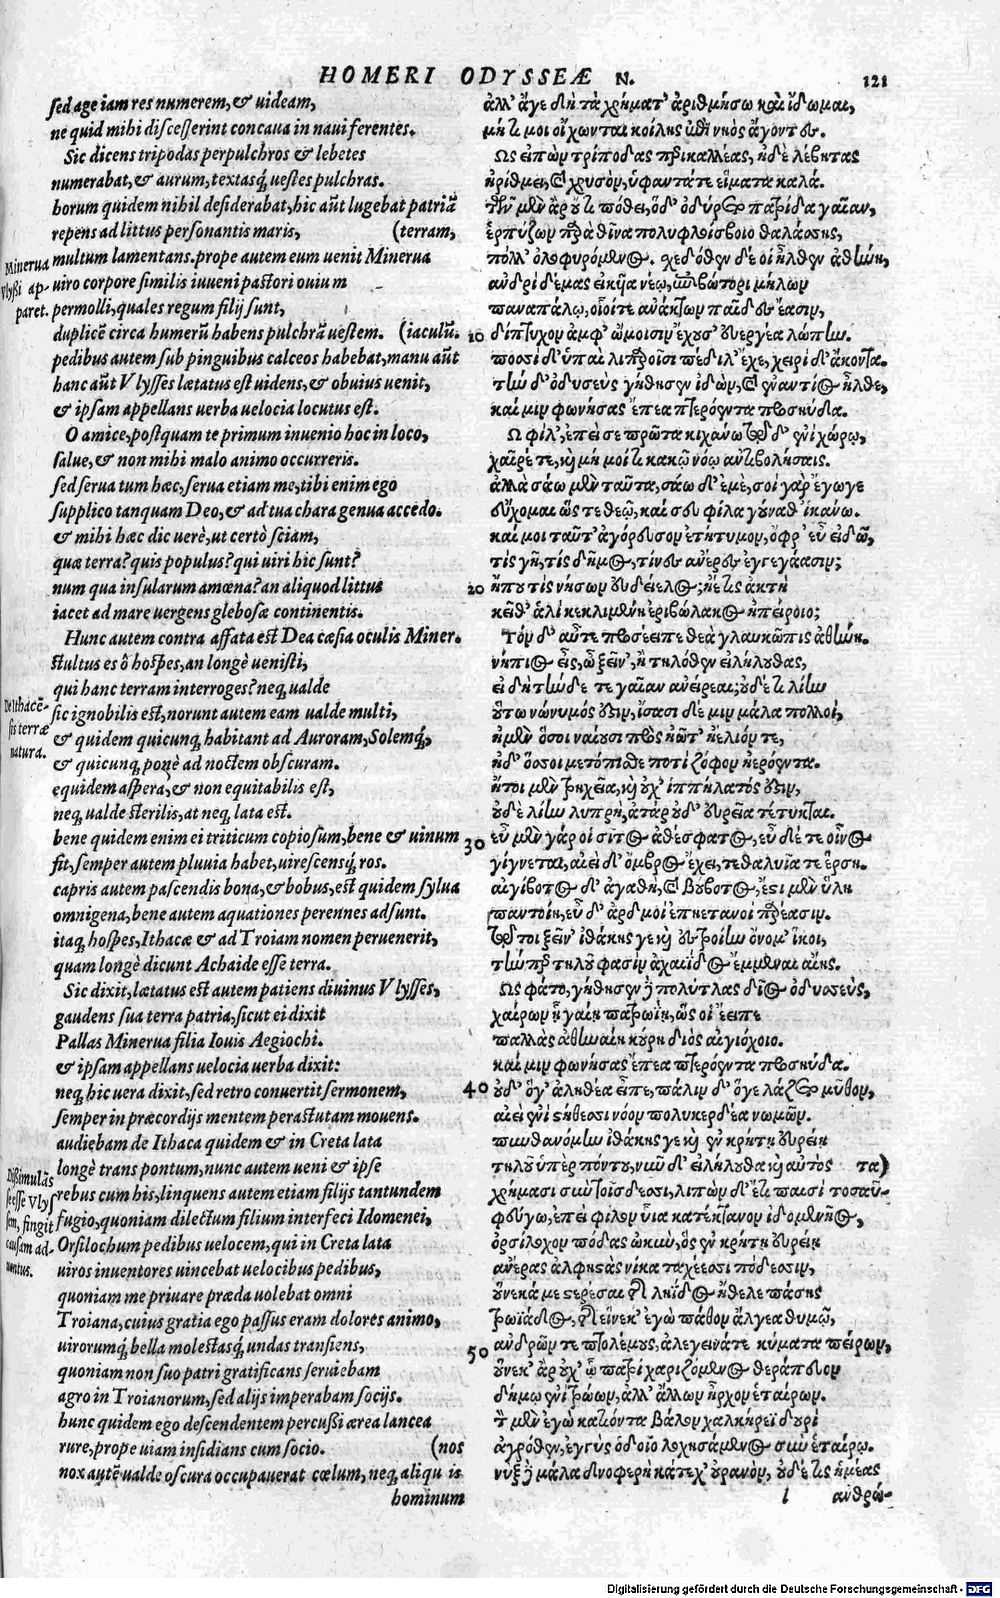 HOMERI ODYSSEÆ N.
121
sed age iam res numerem, & uideam,
ne quid mihi discesserint concaua in naui ferentes.
Sic dicens tripodas perpulchros & lebetes
numerabat, & aurum, textasq́; uestes pulchras.
horum quidem nihil desiderabat, hic aũt lugebat patriã
repens ad littus personantis maris, (terram,
multum lamentans. prope autem eum uenit Minerua
uiro corpore similis iuueni pastori ouium
permolli, quales regum filij sunt,
duplicē circa humerũ habens pulchrã uestem. (iaculũ.
pedibus autem sub pinguibus calceos habebat, manu aũt
hanc aũt Vlysses lætatus est uidens, & obuius uenit,
& ipsam appellans uerba uelocia locutus est.
O amice, postquam te primum inuenio hoc in loco,
salue, & non mihi malo animo occurreris.
sed serua tum hæc, serua etiam me, tibi enim ego
supplico tanquam Deo, & ad tua chara genua accedo.
& mihi hæc dic uerè, ut certò sciam,
quæ terra? quis populus? qui uiri hic sunt?
num qua insularum amœna? an aliquod littus
iacet ad mare uergens glebosæ continentis.
Hunc autem contra affata est Dea cæsia oculis Miner.
stultus es ô hospes, an longè uenisti,
qui hanc terram interroges? neq; ualde
sic ignobilis est, norunt autem eam ualde multi,
& quidem quicunq; habitant ad Auroram, Solemq́;,
& quicunq; ponè ad noctem obscuram.
equidem aspera, & non equitabilis est,
neq; ualde sterilis, at neq; lata est.
bene quidem enim ei triticum copiosum, bene & uinum
fit, semper autem pluuia habet, uirescensq́; ros.
capris autem pascendis bona, & bobus, est quidem sylua
omnigena, bene autem aquationes perennes adsunt.
itaq; hospes, Ithacæ & ad Troiam nomen peruenerit,
quam longè dicunt Achaide esse terra.
Sic dixit, lætatus est autem patiens diuinus Vlysses,
gaudens sua terra patria, sicut ei dixit
Pallas Minerua filia Iouis Aegiochi.
& ipsam appellans uelocia uerba dixit:
neq; hic uera dixit, sed retro conuertit sermonem,
semper in præcordijs mentem perastutam mouens.
audiebam de Ithaca quidem & in Creta lata
longè trans pontum, nunc autem ueni & ipse
rebus cum his, linquens autem etiam filijs tantundem
fugio, quoniam dilectum filium interfeci Idomenei,
Orsilochum pedibus uelocem, qui in Creta lata
uiros inuentores uincebat uelocibus pedibus,
quoniam me priuare præda uolebat omni
Troiana, cuius gratia ego passus eram dolores animo,
uirorumq́; bella molestasq́; undas transiens,
quoniam non suo patri gratificans seruiebam
agro in Troianorum, sed alijs imperabam socijs.
hunc quidem ego descendentem percussi ærea lancea
rure, prope uiam insidians cum socio. (nos
nox autē ualde oscura occupauerat cœlum, neq; aliquis
hominum
Minerua
Vlyssi ap-
paret.
De Ithacē-
sis terræ
natura.
Dissimulãs
se esse Vlys
sem, fingit
causam ad-
uentus.
ἀλλ' ἄγε δὴ τὰ χρήματ' ἀριθμήσω καὶ ἴδωμαι,
μή τι μοι οἴχωνται κοίλης ἐπὶ νηὸς ἄγοντες.
Ὣς εἰπὼν τρίποδας περικαλλέας, ἠδὲ λέβητας
ἠρίθμει, καὶ χρυσὸν, ὑφαντά τε εἵματα καλά.
τῶν μὲν ἄρ οὔ τι πόθει, ὁ δ' ὀδύρετο πατρίδα γαῖαν,
ἑρπύζων παρὰ θῖνα πολυφλοίσβοιο θαλάσσης,
πόλλ' ὀλοφυρόμενος. σχεδόθεν δέ οἱ ἦλθεν ἀθήνη,
ἀνδρὶ δέμας εἰκυῖα νέῳ, ἐπιβώτορι μήλων
παναπάλῳ, οἷοί τε ἀνάκτων παῖδες ἔασιν,
10 δίπτυχον ἀμφ' ὤμοισιν ἔχουσ' εὐεργέα λώπην.
ποσσὶ δ' ὑπαὶ λιπαροῖσι πέδιλ' ἔχε, χειρὶ δ' ἄκοντα.
τὴν δ' ὀδυσεὺς γήθησεν ἰδὼν, καὶ ἐναντίος ἦλθε,
καί μιν φωνήσας ἔπεα πτερόεντα προσηύδα.
Ω φίλ', ἐπεί σε πρῶτα κιχάνω τῷδ' ἐνὶ χώρῳ,
χαῖρέ τε, καὶ μή μοί τι κακῷ νόῳ ἀντιβολήσαις.
ἀλλὰ σάω μὲν ταῦτα, σάω δ' ἐμὲ, σοὶ γὰρ ἔγωγε
εὔχομαι ὥς τε θεῷ, καί σευ φίλα γούναθ' ἱκάνω.
καί μοι ταῦτ' ἀγόρευσον ἐτήτυμον, ὄφρ' εὖ εἰδῶ,
τίς γῆ, τίς δῆμος, τίνες ἀνέρες ἐγγεγάασιν;
20 ἤ που τίς νήσων εὐδείελος; ἠέ τις ἀκτὴ
κεῖθ' ἁλὶ κεκλιμένη ἐριβώλακος ἠπείροιο;
Τὸν δ' αὖτε προσέειπε θεὰ γλαυκῶπις ἀθήνη.
νήπιος εἶς, ὦ ξεῖν', ἢ τηλόθεν εἰλήλουθας,
εἰ δὴ τήνδε τε γαῖαν ἀνείρεαι; οὐδέ τι λίην
οὕτω νώνυμός ἐστιν, ἴσασι δέ μιν μάλα πολλοί,
ἠμὲν ὅσοι ναίουσι πρὸς ἠῶτ' ἠελιόν τε,
ἠδ' ὅσσοι μετόπισθε ποτὶ ζόφον ἠερόεντα.
ἤτοι μὲν τρηχεῖα, καὶ οὐχ' ἱππήλατός ἐστιν,
οὐδὲ λίην λυπρὴ, ἀτὰρ οὐδ' εὐρεῖα τέτυκται.
30 εὖ μὲν γάρ οἱ σῖτος ἀθέσφατος, εὖ δέ τε οἶνος
γίγνεται, αἰεὶ δ' ὄμβρος ἔχει, τεθαλυῖά τε ἔρση.
αἰγίβοτος δ' ἀγαθὴ, καὶ βούβοτος, ἔστι μὲν ὕλη
παντοίη, εὖ δ' ἀρδμοὶ ἐπηετανοὶ παρέασιν.
τῷ τοι ξεῖν' ἰθάκης γε καὶ ἐς τροίην ὄνομ' ἵκοι,
τήν περ τηλοῦ φασὶν ἀχαιΐδος ἔμμεναι αἴης.
Ὣς φάτο, γήθησεν δὲ πολύτλας δῖος ὀδυσσεὺς,
χαίρων ᾗ γαίῃ πατρωίῃ, ὥς οἱ ἔειπε
παλλὰς ἀθηναίη κούρη διὸς αἰγιόχοιο.
καί μιν φωνήσας ἔπεα πτερόεντα προσηύδα.
40 οὐδ' ὅγ' ἀληθέα εἶπε, πάλιν δ' ὅγε λάζετο μῦθον,
αἰεὶ ἐνὶ στήθεσσι νόον πολυκερδέα νωμῶν.
πυνθανόμην ἰθάκης γε καὶ ἐν κρήτῃ εὐρείῃ
τηλοῦ ὑπὲρ πόντου, νῦν δ' εἰλήλουθα καὶ αὐτὸς τα)
χρήμασι σὺν τοῖσδεσσι, λιπὼν δ' ἔτι παισὶ τοσαῦ-
φεύγω, ἐπεὶ φίλον υἷα κατέκτανον ἰδομενῆος,
ὀρσίλοχον πόδας ὠκὺν, ὃς ἐν κρήτῃ εὐρείῃ
ἀνέρας ἀλφηστὰς νίκα ταχέεσσι πόδεσσιν,
οὕνεκά με στερέσαι τῆς ληΐδος ἤθελε πάσης
τρωϊάδος, τῆς εἵνεκ' ἐγὼ πάθον ἄλγεα θυμῷ,
50 ἀνδρῶν τε πτολέμους, ἀλεγεινά τε κύματα πείρων,
οὕνεκ' ἄρ οὐχ' ᾧ πατρὶ χαριζόμενος θεράπευον
δήμῳ ἐνὶ τρώων, ἀλλ' ἄλλων ἦρχον ἑταίρων.
τὸν μὲν ἐγὼ κατιόντα βάλον χαλκήρεϊ δουρὶ
ἀγρόθεν, ἐγγὺς ὁδοῖο λοχησάμενος σὺν ἑταίρῳ.
νὺξ δὲ μάλα δνοφερὴ κάτεχ' οὐρανὸν, οὐδέ τις ἡμέας
l ἀνθρώ-
Digitalisierung gefördert durch die Deutsche Forschungsgemeinschaft - DFG